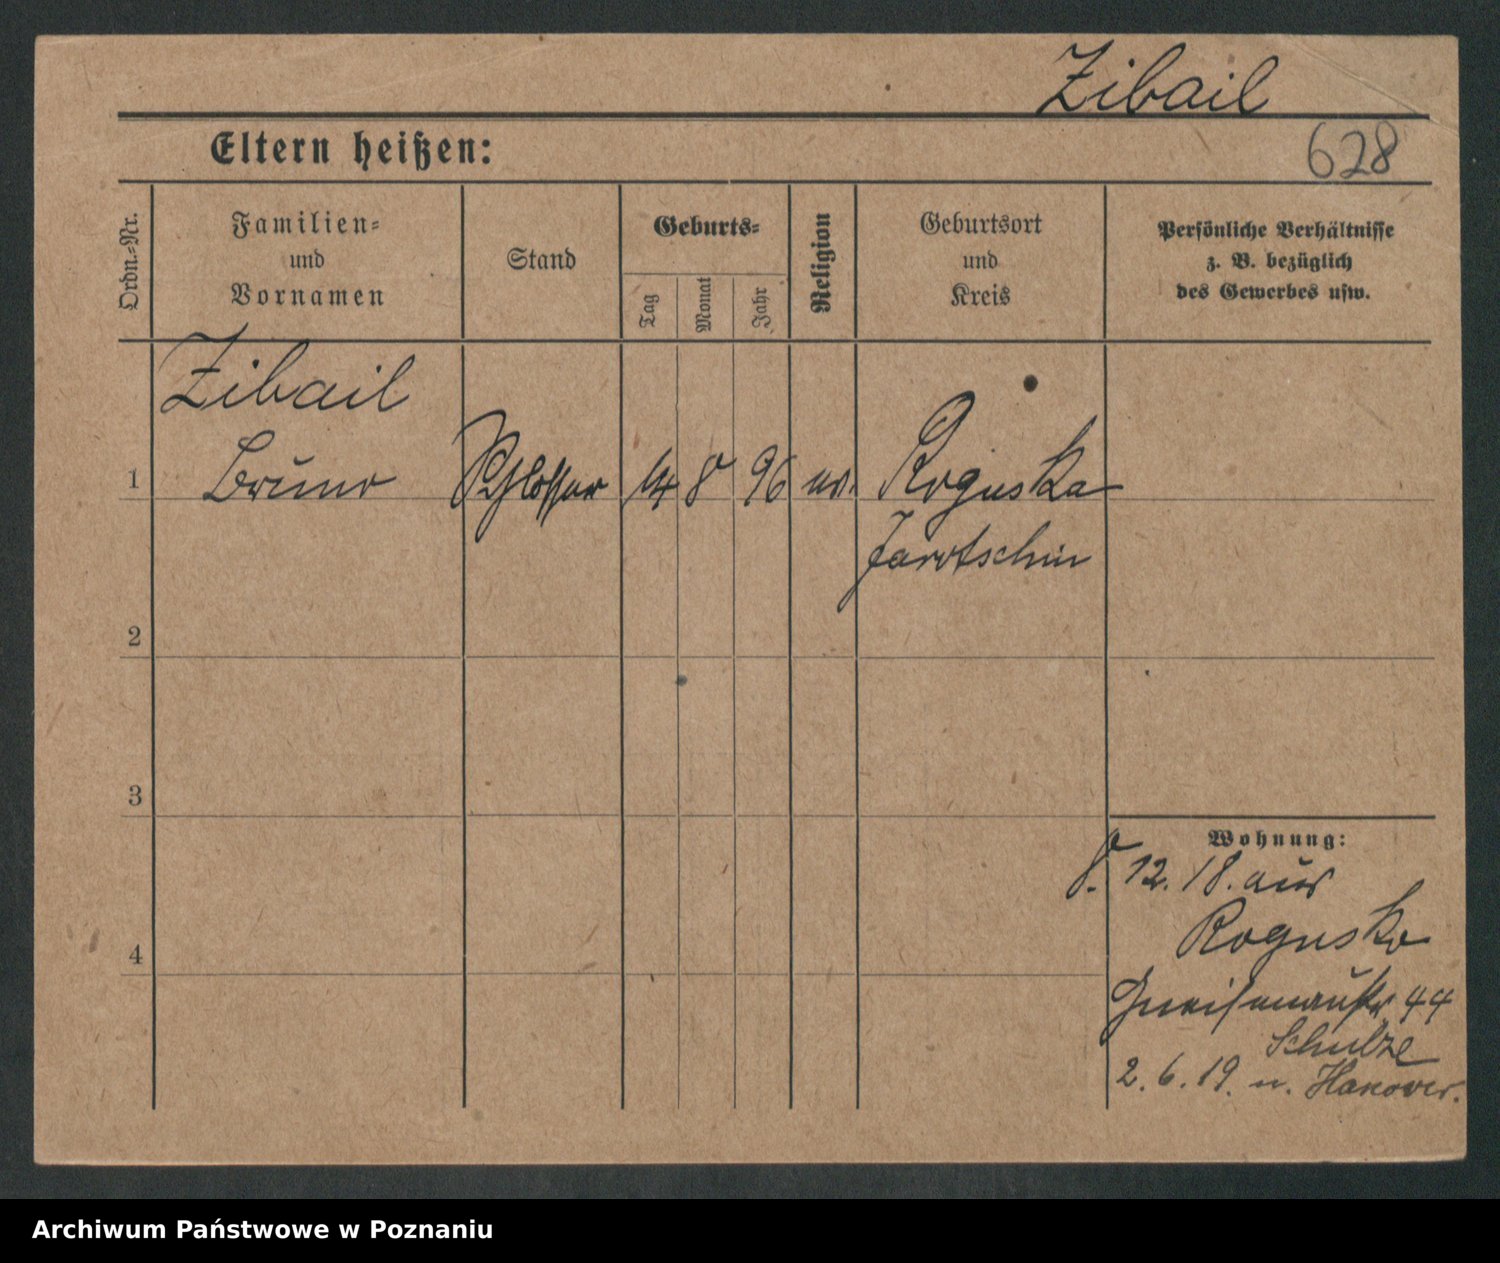 Zibail
Eltern heißen:
628
Ordn.-Nr.
Familien-
und
Vornamen
Stand
Geburts-
Tag
Monat
Jahr
Religion
Geburtsort
und
Kreis
Persönliche Verhältnisse
z. B. bezüglich
des Gewerbes usw.
Zibail
1
Bruno
Schlosser
14
8
96
ev.
Roguska
Jarotschin
2
3
Wohnung:
8. 12. 18. aus
Rogusko
4
Gneisenaustr. 44
Schulze
2. 6. 19. n. Hanover.
Archiwum Państwowe w Poznaniu